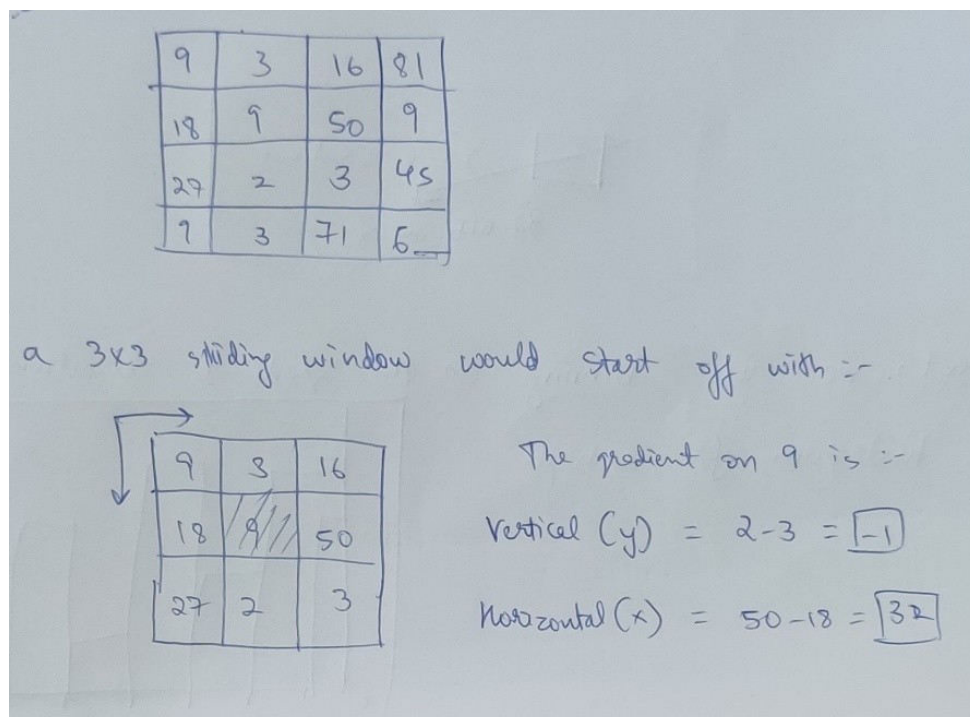 9 3 16 81
18 9 50 9
27 2 3 45
9 3 71 6
a 3x3 sliding window would start off with :-
9 3 16
The gradient on 9 is :-
18 9 50
Vertical (y) = 2-3 = -1
27 2 3
Horizontal (x) = 50-18 = 32